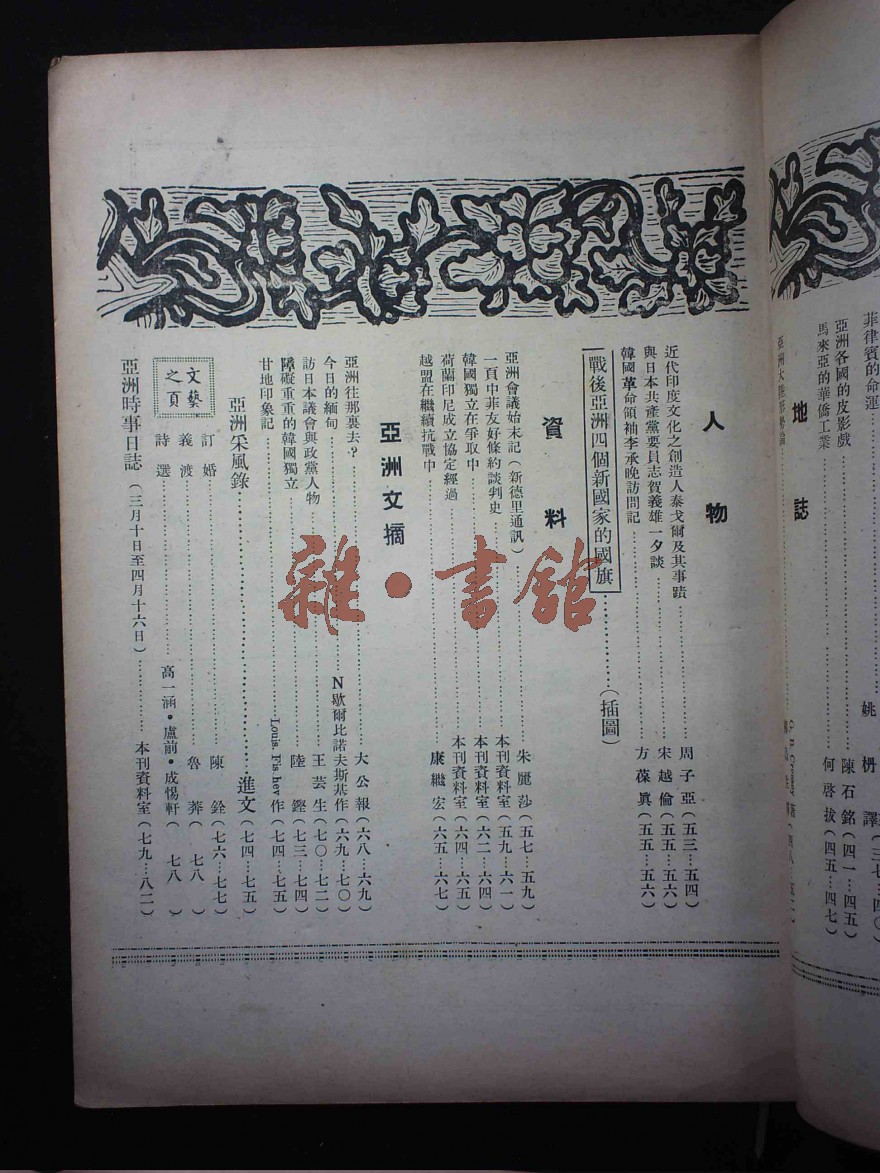 菲律賓的命運
姚枬譯
亞洲各國的皮影戲
陳石銘（四一…四五）
馬來亞的華僑工業
何啓拔（四五…四七）
地誌
人物
近代印度文化之創造人泰戈爾及其事蹟 周子亞（五三…五四）
與日本共產黨要員志賀義雄一夕談 宋越倫（五五…五六）
韓國革命領袖李承晚訪問記 方葆眞（五五…五六）
戰後亞洲四個新國家的國旗（插圖）
資料
亞洲會議始末記（新德里通訊） 朱麗莎（五七…五九）
一頁中菲友好條約談判史 本刊資料室（五九…六一）
韓國獨立在爭取中 本刊資料室（六二…六四）
荷蘭印尼成立協定經過 本刊資料室（六四…六五）
越盟在繼續抗戰中 康繼宏（六五…六七）
亞洲文摘
亞洲往那裏去？ 大公報（六八…六九）
今日的緬甸 N歇爾比諾夫斯基作（六九…七〇）
訪日本議會與政黨人物 王芸生（七〇…七二）
障礙重重的韓國獨立 陸鏗（七三…七四）
甘地印象記 Louis. Fis hev 作（七四…七五）
亞洲采風錄 進文（七四…七五）
文藝之頁
訂婚 陳銓（七六…七七）
義渡 魯莽（七八）
詩選 高一涵•盧前•成惕軒（七八）
亞洲時事日誌（三月十日至四月十六日） 本刊資料室（七九…八二）
雜•書館